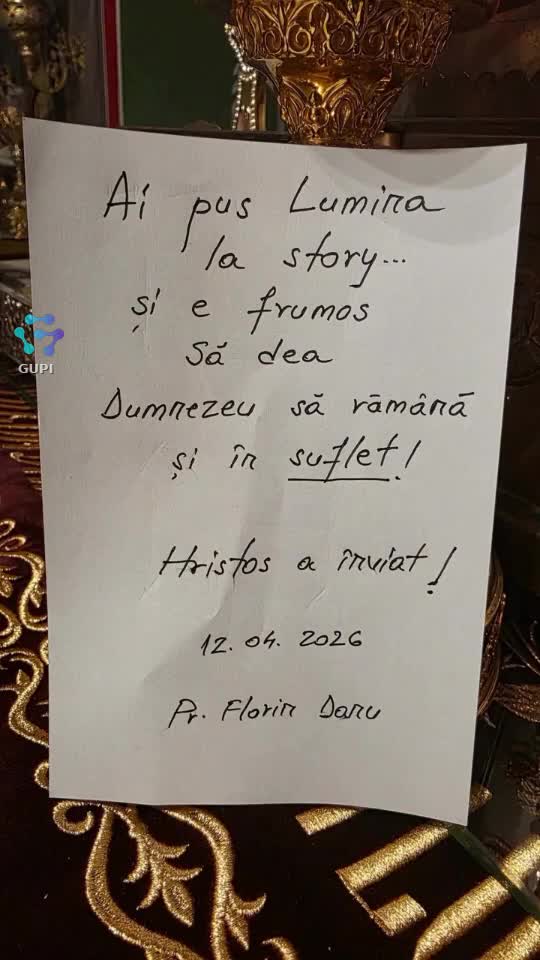 Ai pus Lumina
la story...
și e frumos
Să dea
Dumnezeu să rămână
și în suflet!
Hristos a înviat!
12.04.2026
Pr. Florin Danu
GUPI